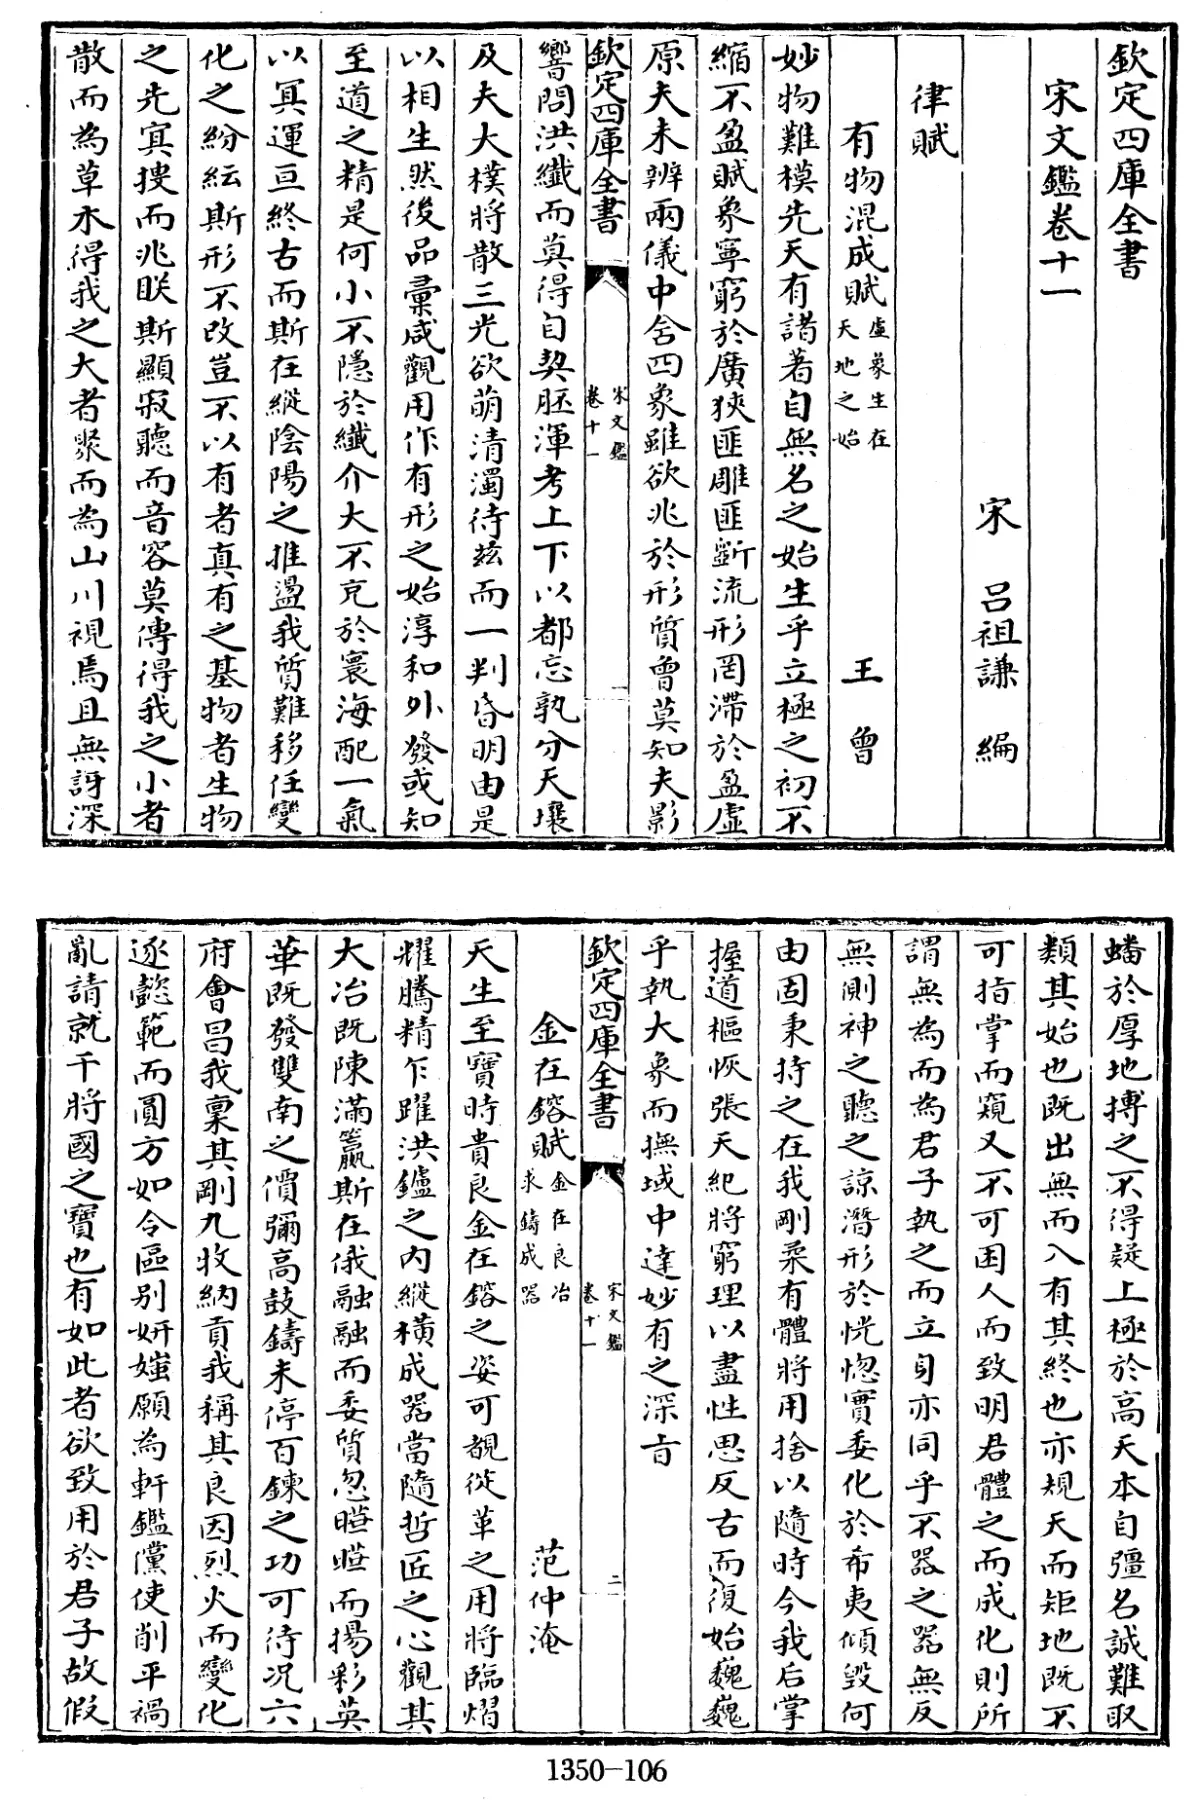 欽定四庫全書
宋文鑑卷十一
宋　呂祖謙　編
律賦
有物混成賦虛象生在天地之始　王　曾
妙物難模先天有諸著自無名之始生乎立極之初不
縮不盈賦象寧窮於廣狹匪雕匪斲流形罔滯於盈虛
原夫未辨兩儀中含四象雖欲兆於形質曾莫知夫影
欽定四庫全書　宋文鑑卷十一　一
響問洪纖而莫得自契胚渾考上下以都忘孰分天壤
及夫大樸將散三光欲萌清濁待兹而一判昏明由是
以相生然後品彚咸觀用作有形之始淳和外發或知
至道之精是何小不隱於纖介大不充於寰海配一氣
以冥運亘終古而斯在縱陰陽之推盪我質難移任變
化之紛紜斯形不改豈不以有者真有之基物者生物
之先寘搜而兆眹斯顯寂聽而音容莫傳得我之小者
散而為草木得我之大者聚而為山川視焉且無訝深
蟠於厚地摶之不得疑上極於高天本自彊名誠難取
類其始也既出無而入有其終也亦規天而矩地既不
可指掌而窺又不可因人而致明君體之而成化則所
謂無為而為君子執之而立身亦同乎不器之器無反
無側神之聽之諒潛形於恍惚實委化於希夷傾毀何
由固秉持之在我剛柔有體將用捨以隨時今我后掌
握道樞恢張天紀將窮理以盡性思反古而復始巍巍
乎執大象而撫域中達妙有之深旨
欽定四庫全書　宋文鑑卷十一　二
金在鎔賦金在良冶求鑄成器　范仲淹
天生至寶時貴良金在鎔之姿可覩從革之用將臨熠
耀騰精乍躍洪鑪之內縱橫成器當隨哲匠之心觀其
大冶既陳滿籯斯在俄融融而委質忽曄曄而揚彩英
華既發雙南之價彌高鼓鑄未停百鍊之功可待况六
府會昌我稟其剛九牧納貢我稱其良因烈火而變化
逐懿範而圓方如令區別妍媸願為軒鑑儻使削平禍
亂請就干將國之寶也有如此者欲致用於君子故假
1350-106